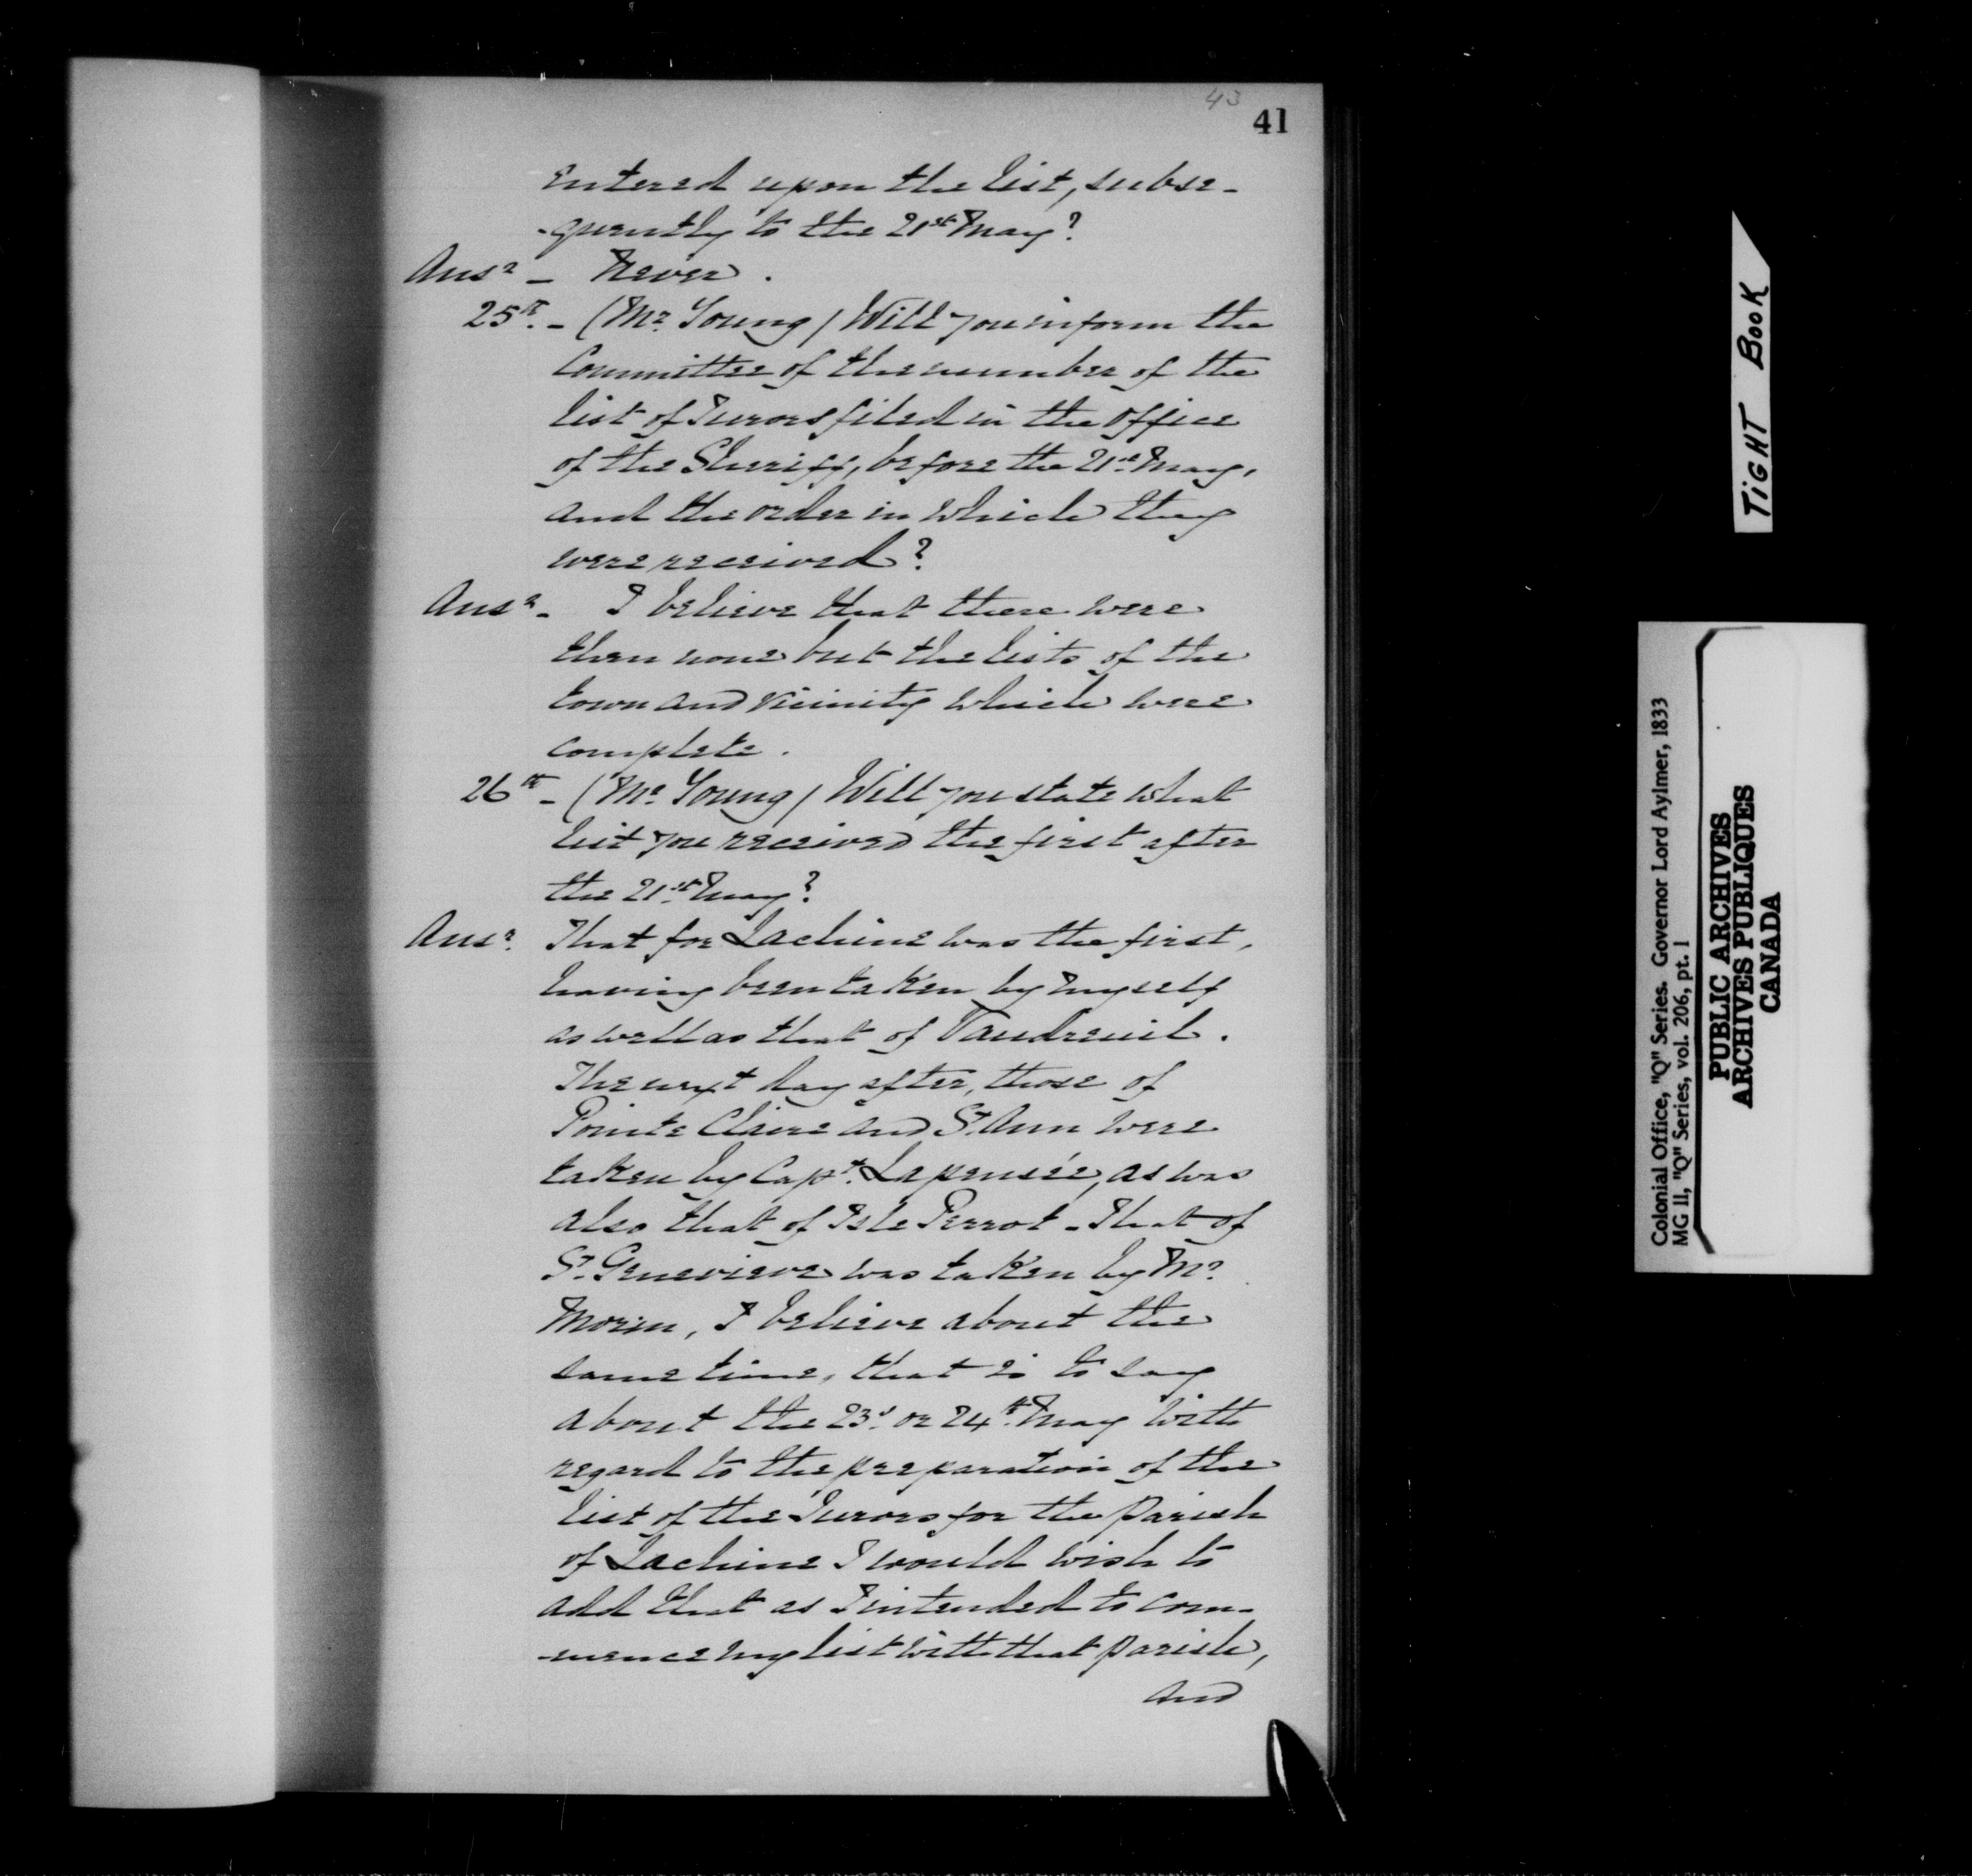 43
41
entered upon the list, subse-
-quently to the 21st May?
Ansr - Never.
25th. - (Mr. Young) Will you inform the
Committee of the number of the
list of Jurors filed in the Office
of the Sheriff, before the 21st. May,
and the order in which they
were received?
Ansr. I believe that there were
then none but the lists of the
town and vicinity which were
complete.
26th - (Mr. Young) Will you state what
list you received the first after
the 21st. May?
Ansr. That for Lachine was the first,
having been taken by myself
as well as that of Vaudreuil.
The next day after, those of
Pointe Claire and St. Ann were
taken by Capt. Lapensée, as was
also that of Isle Perrot - That of
St. Genevieve was taken by Mr.
Morin, I believe about the
same time, that is to say
about the 23d. or 24th. May with
regard to the preparation of the
list of the Jurors for the Parish
of Lachine I would wish to
add that as I intended to com-
-mence my list with that Parish,
and
TIGHT BOOK
Colonial Office, "Q" Series. Governor Lord Aylmer, 1833
MG 11, "Q" Series, vol. 206, pt. 1
PUBLIC ARCHIVES
ARCHIVES PUBLIQUES
CANADA